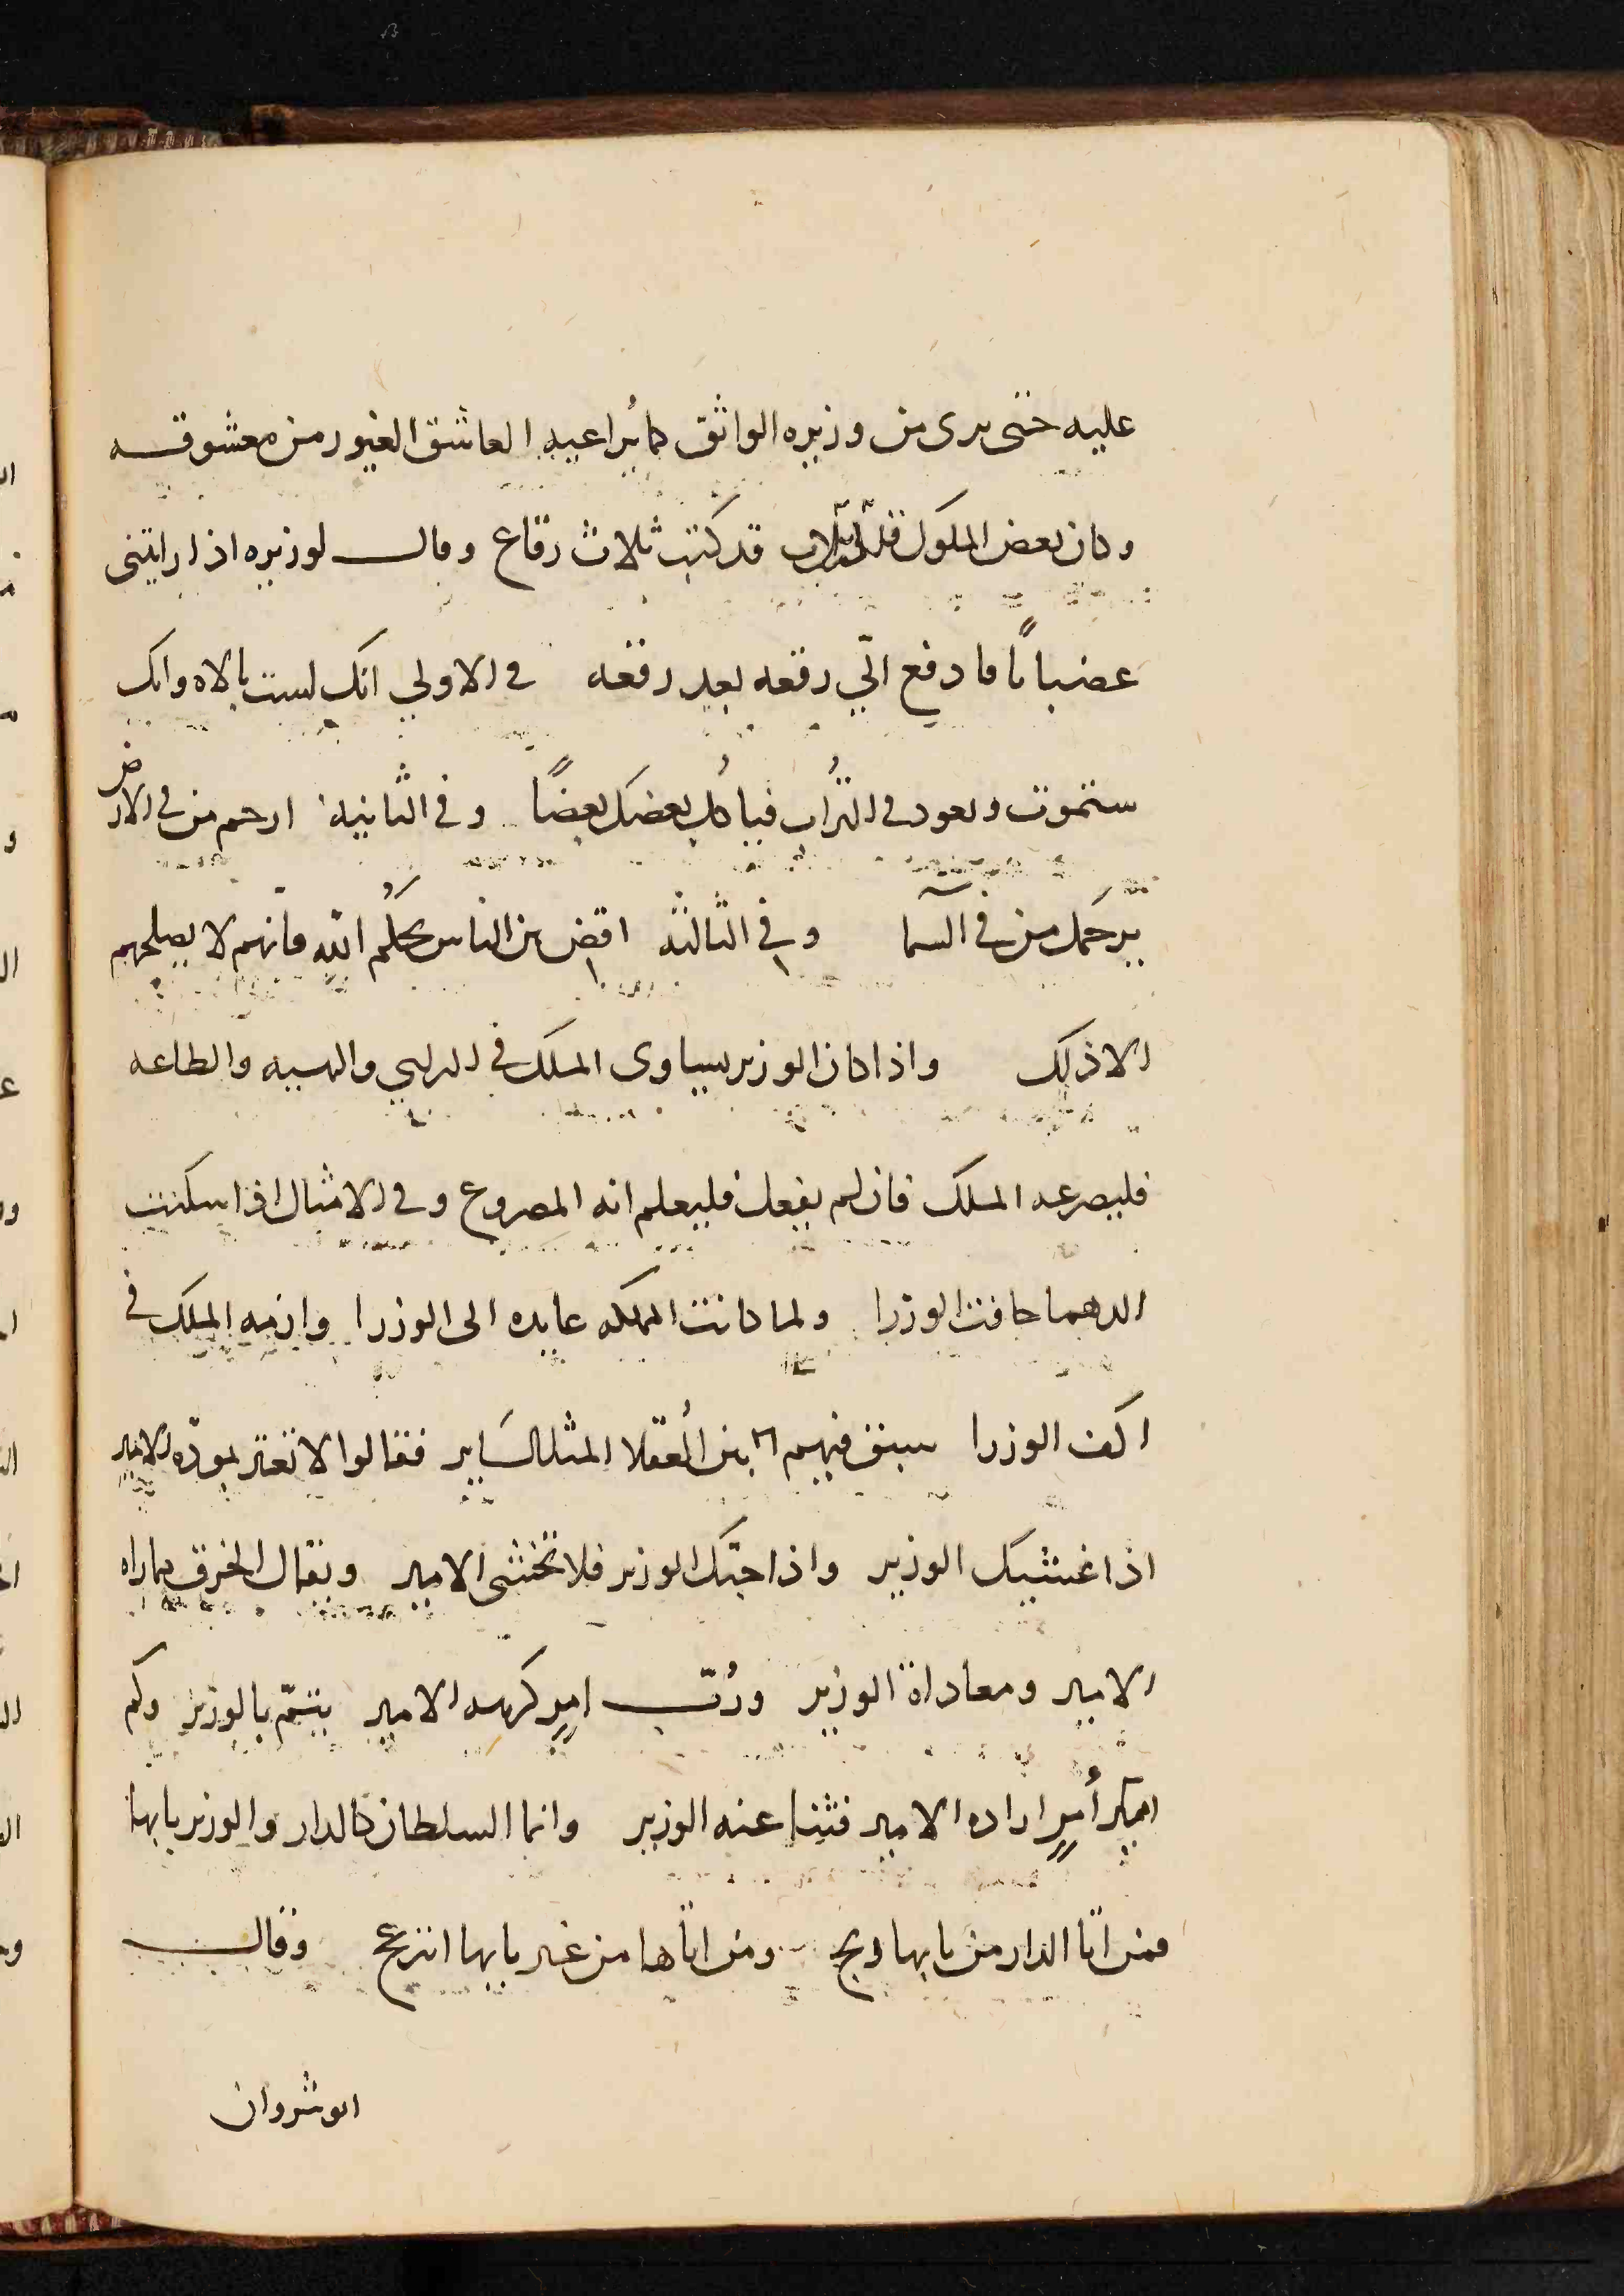 عليه حتى يرى من وزيره الواثق كما يُراعيه العاشق الغيور من معشوقـــه
وكان بعض الملوك قد كتب ثلاث رقاع وقالــ لوزيره اذا رايتنى
غضباناً فادفع اليّ رقعه بعد رقعه في الاولي انك لست بالاه وانك
ستموت وتعود في التُراب فياكلُ بعضك بعضًا وفي الثانيه ارحم من في الارض
يرحمَك من في السما وفي الثالثه اقض بين الناس بحكُم الله فانهم لا يصلحهم
الا ذلك واذا كان الوزير يساوى الملك في الراي والهيبه والطاعه
فليصرعه الملك فان لم يفعل فليعلم انه المصروع وفي الامثال اذا سكنت
الدهما خافت الوزرا ولما كانت المملكه عايده الى الوزرا وازمه الملك في
اكف الوزرا سبق فيهم من العُقلا المثل السَاير فقالوا لا تغتر بمودّه الامير
اذا غشيك الوزير واذا احبّك الوزير فلا تخشى الامير ويقال الخرق مماراه
الامير ومعاداة الوزير ورُبّــ امرٍ كرهه الامير يتمّ بالوزير وكم
أمرٍ اراده الامير فثنا عنه الوزير وانما السلطان كالدار والوزير بابها
فمن اتا الدار من بابها ولج ومن اتاها من غير بابها انزعج وقالـــ
انوشروان